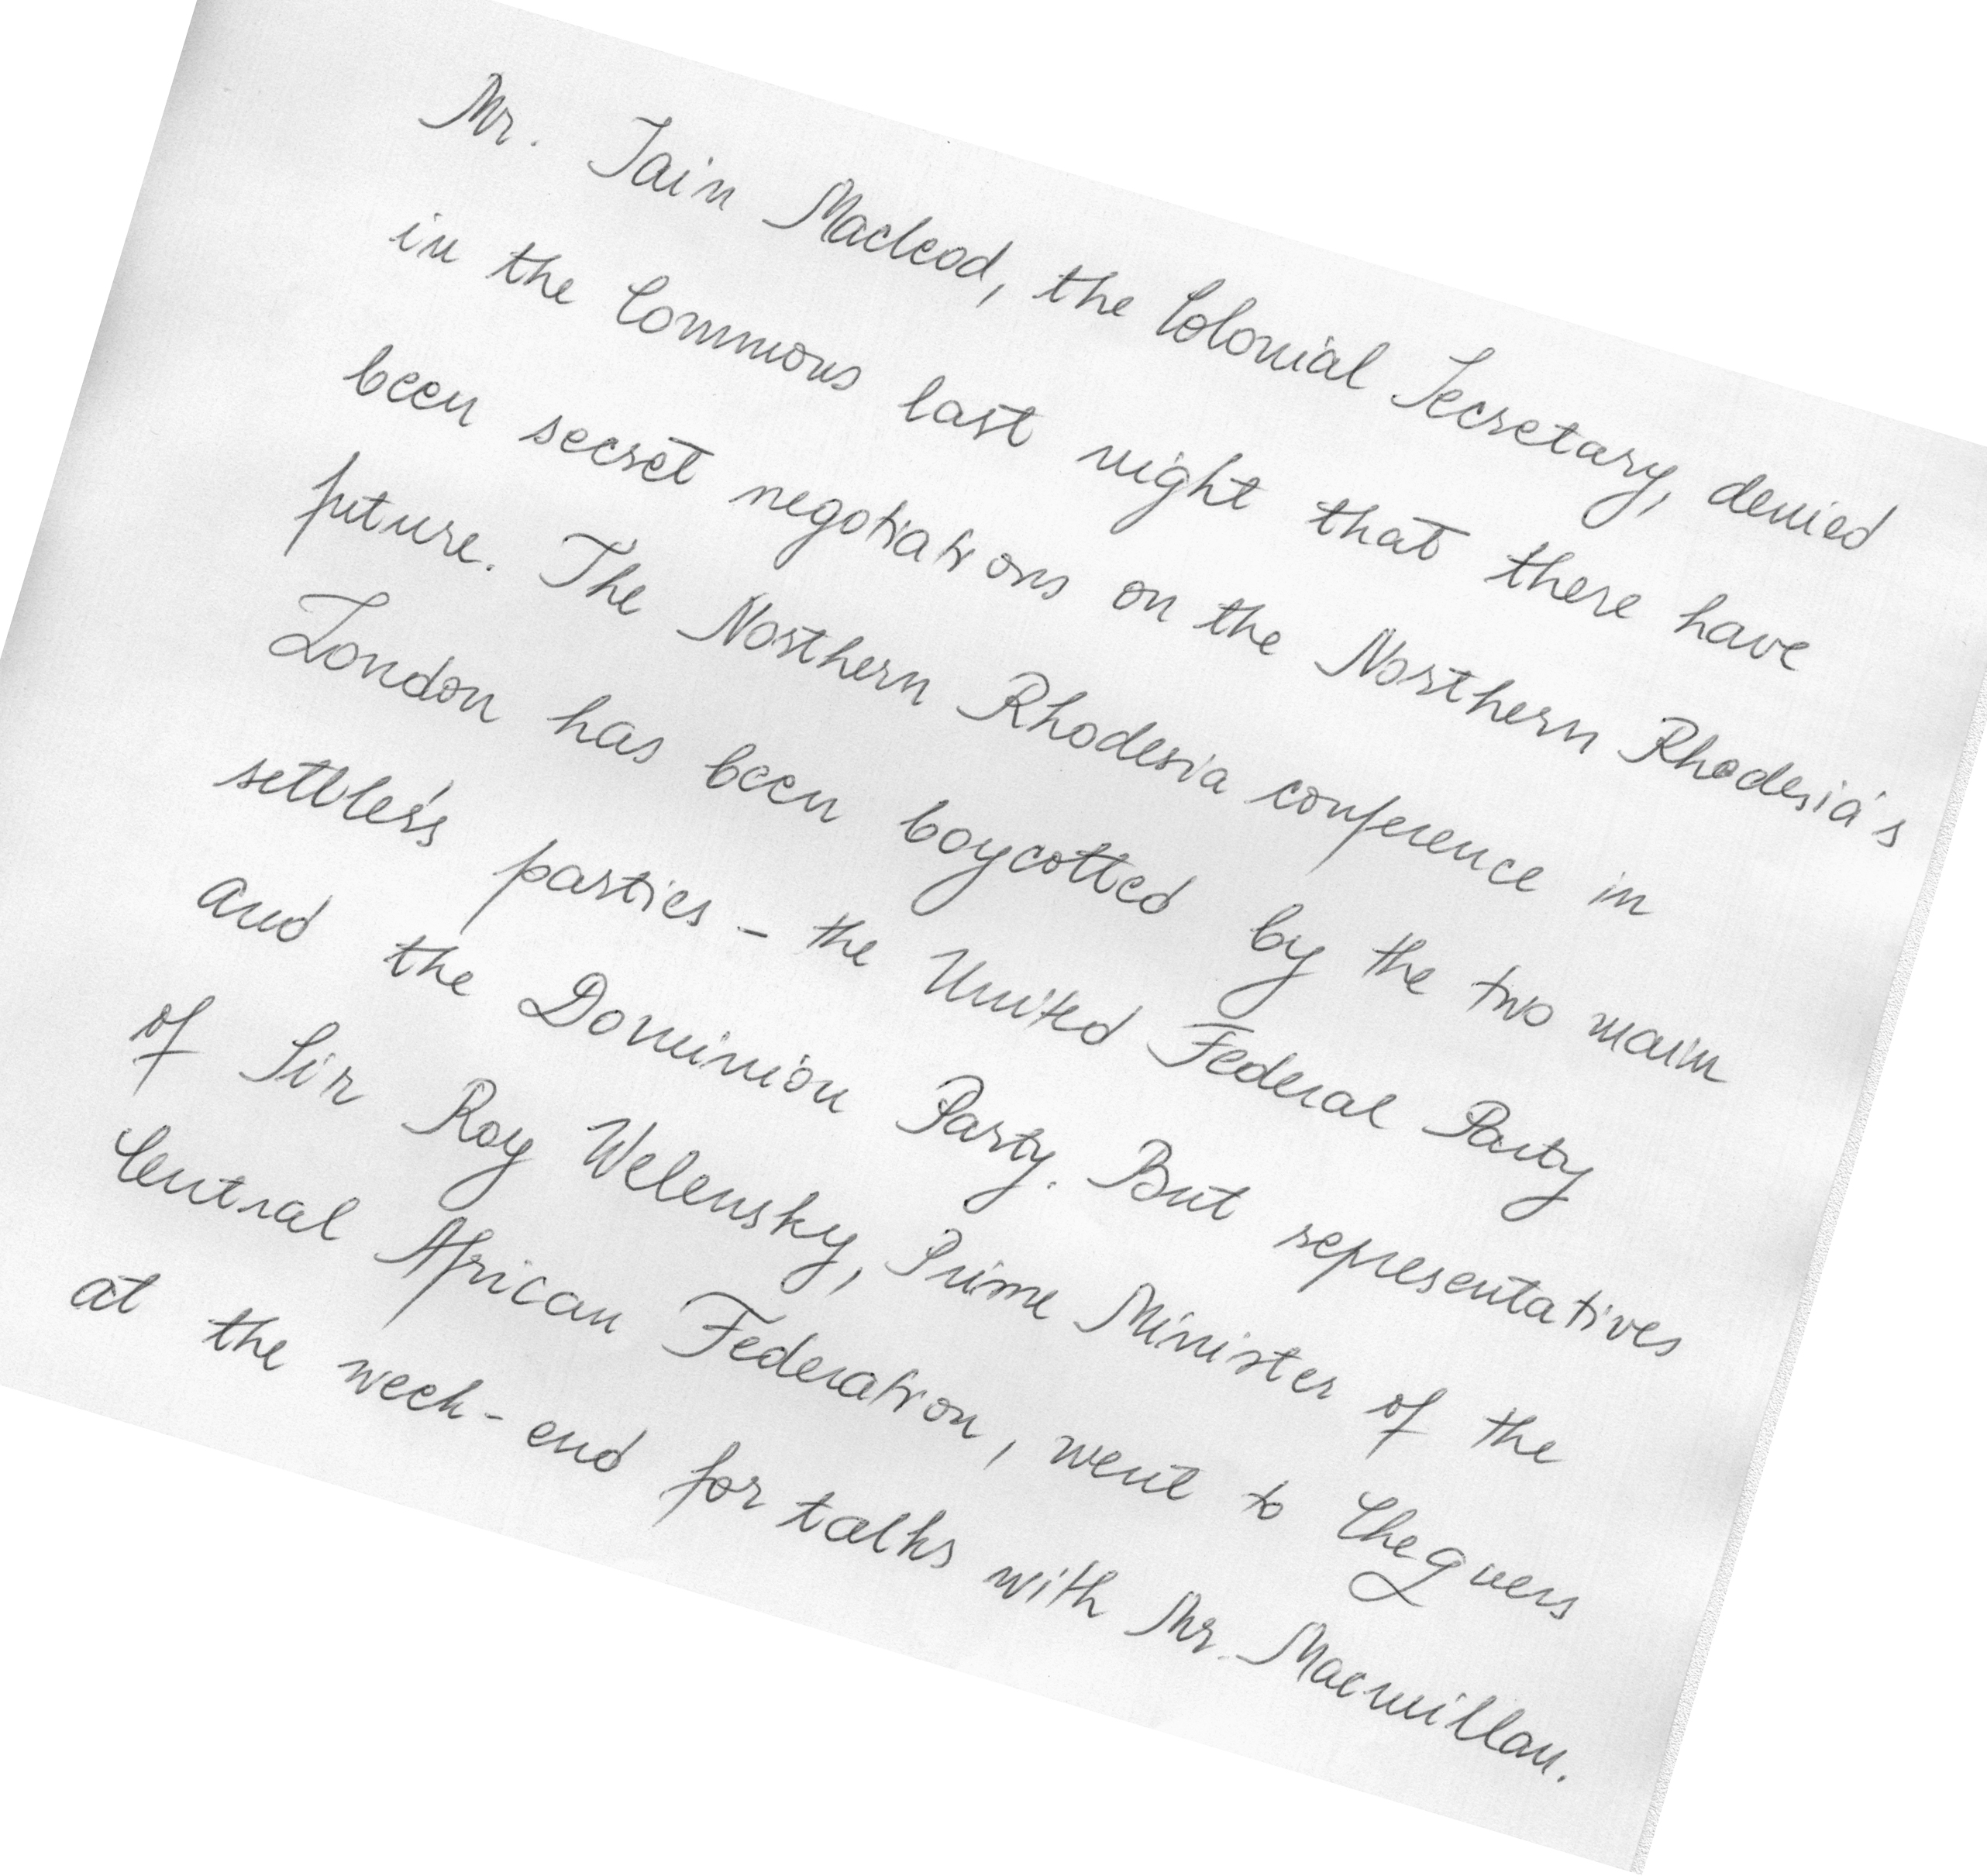 Mr. Iain Macleod, the Colonial Secretary, denied
in the Commons last night that there have
been secret negotiations on the Northern Rhodesia's
future. The Northern Rhodesia conference in
London has been boycotted by the two main
settlers parties - the United Federal Party
and the Dominion Party. But representatives
of Sir Roy Welensky, Prime Minister of the
Central African Federation, went to Chequers
at the week-end for talks with Mr. Macmillan.